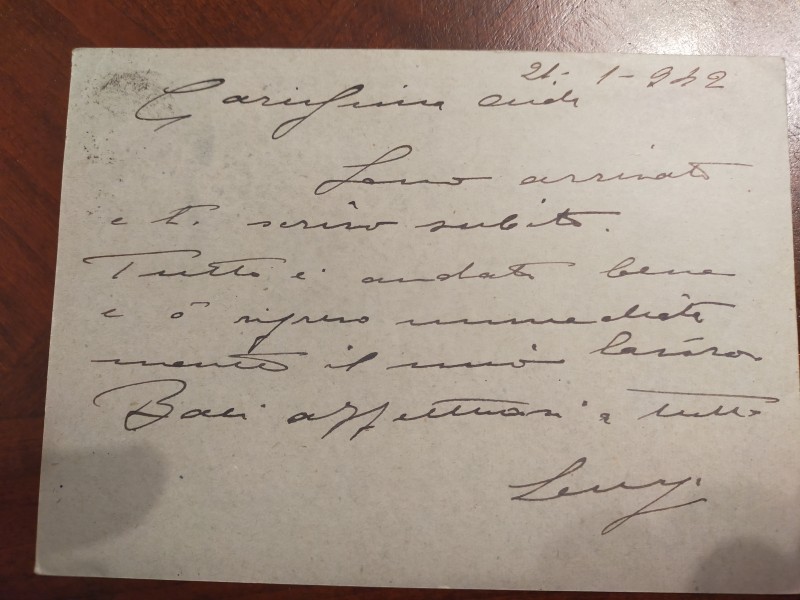 21-1-942
Carissima
Sono arrivato
e ti scrivo subito.
Tutto è andato bene
e ò ripreso immediata
mente il mio lavoro
Baci affettuosi a tutti